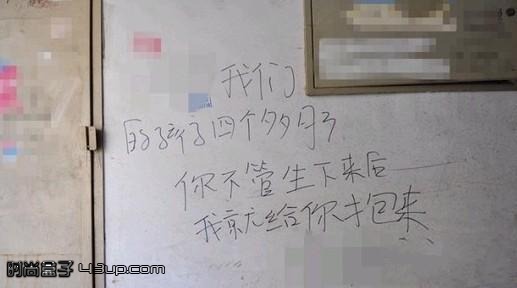 我们
的孩子四个多月了
你不管生下来后
我就给你抱来
时尚盒子 43up.com